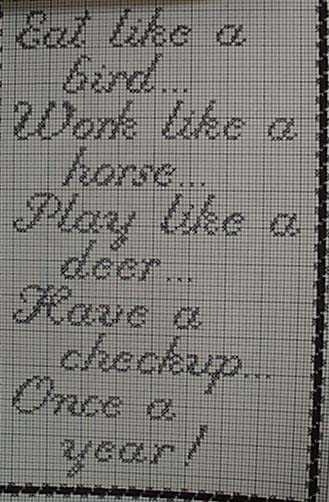 Eat like a
bird...
Work like a
horse...
Play like a
deer...
Have a
checkup...
Once a
year!